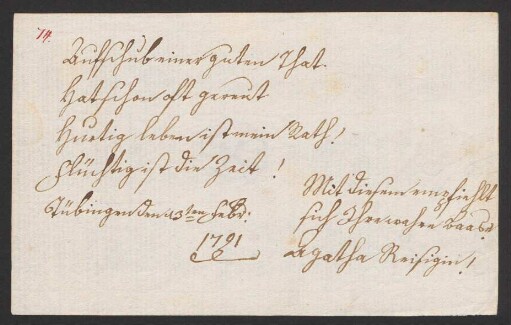 74.
Aufschub einer guten That
Hat schon oft gereut
Hurtig leben ist mein Rath!
Flüchtig ist die Zeit!
Tübingen den 13ten Febr:
1791
Mit diesem empfiehlt
sich Ihre wahre
Agatha Reisigin!